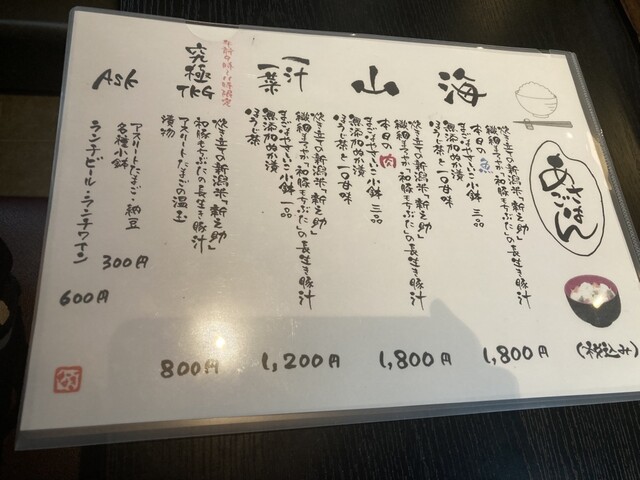 あさごはん
(税込み)
海
炊き立ての新潟米「新之助」
繊細まろやか「和豚もちぶた」の長生き豚汁
本日の魚
まごはやさしいこ小鉢 三品
無添加ぬか漬
ほうじ茶と一口甘味
1,800円
山
炊き立ての新潟米「新之助」
繊細まろやか「和豚もちぶた」の長生き豚汁
本日の肉
まごはやさしいこ小鉢 三品
無添加ぬか漬
ほうじ茶と一口甘味
1,800円
一汁
一菜
炊き立ての新潟米「新之助」
繊細まろやか「和豚もちぶた」の長生き豚汁
まごはやさしいこ小鉢 一品
無添加ぬか漬
ほうじ茶
1,200円
究極
TKG
炊き立ての新潟米「新之助」
和豚もちぶたの長生き豚汁
アスリートたまごの温玉
漬物
800円
Ask
アスリートたまご・納豆
各種小鉢
300円
ランチビール・ランチワイン
600円